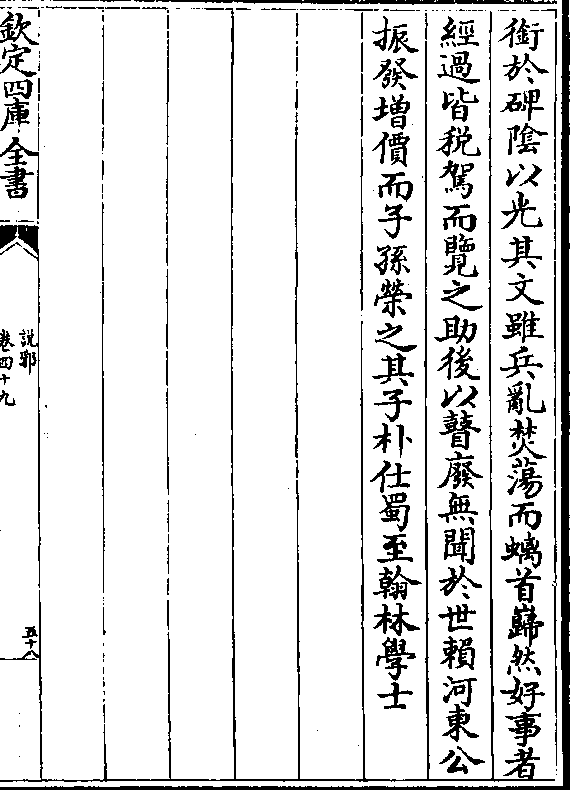 銜於碑陰以光其文雖兵亂焚蕩而螭首巋然好事者
經過皆税駕而覽之助後以瞽廢無聞於世賴河東公
振發增價而子孫榮之其子朴仕蜀至翰林學士
欽定四庫全書
說郛
卷四十九
五十八